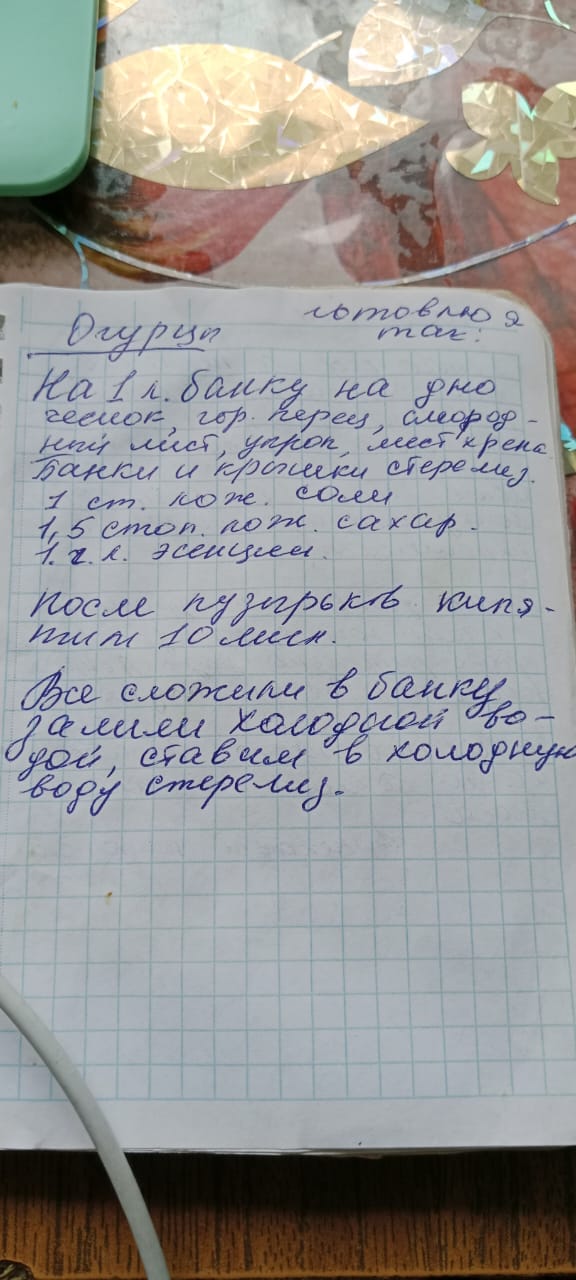 Огурцы
готовлю я
так:
На 1 л. банку на дно
чеснок, гор. перец, смород-
ный лист, укроп, лист хрена
Банки и крышки стерелиз.
1 ст. лож. соли
1,5 стол. лож. сахар.
1 ч. л. эсенции.
После пузырьков кипя-
тим 10 мин.
Все сложили в банку
залили холодной во-
дой, ставим в холодную
воду стерелиз.